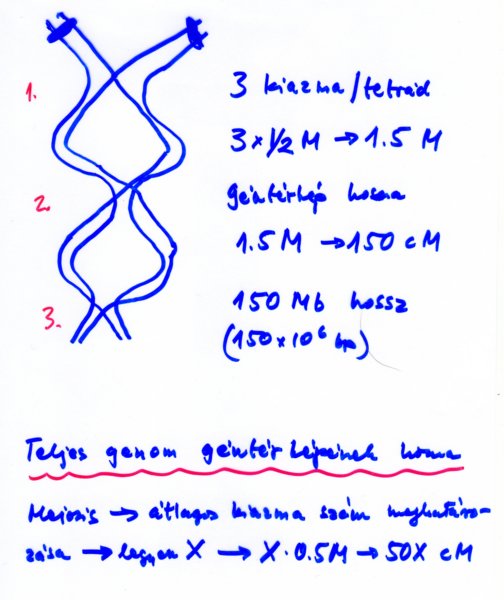 1.
3 kiazma/tetrád
3 x 1/2 M → 1.5 M
géntérkép hossza
2.
1.5 M → 150 cM
150 Mb hossz
3.
(150 x 10⁶ bp)
Teljes genom géntérképeinek hossza
Meiózis → átlagos kiazma szám meghatáro-
zása → legyen X → X · 0.5M → 50X cM